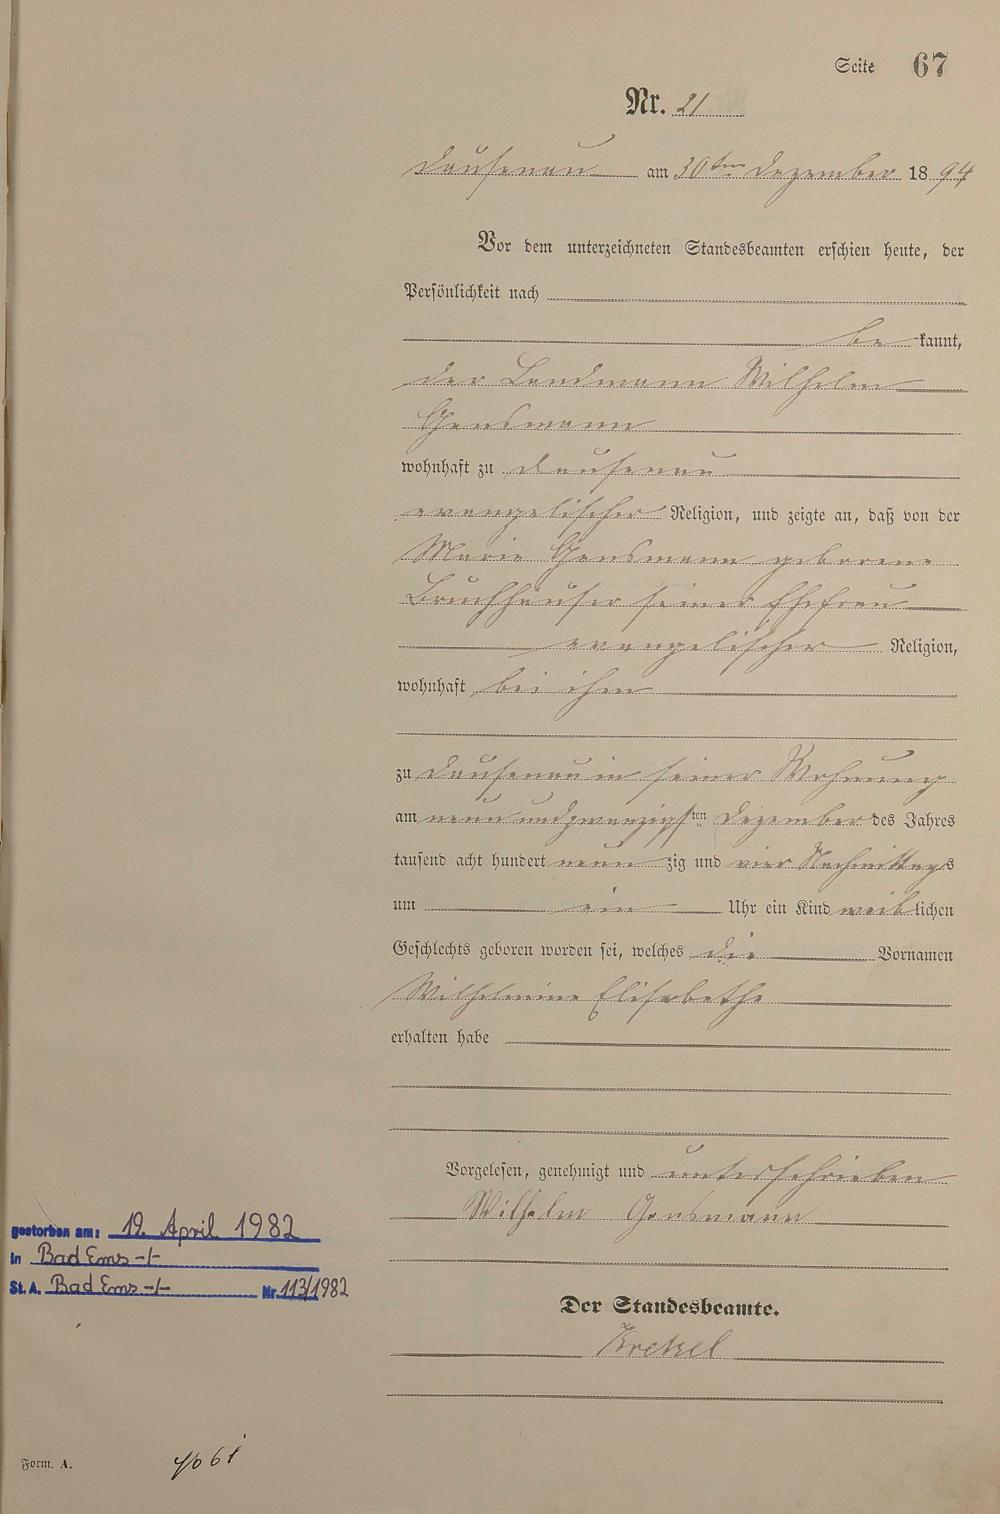 Seite 67
Nr. 21
Dausenau am 30ten Dezember 1894
Vor dem unterzeichneten Standesbeamten erschien heute, der
Persönlichkeit nach
bekannt,
der Landmann Wilhelm
Gensmann
wohnhaft zu Dausenau
evangelischer Religion, und zeigte an, daß von der
Marie Gensmann geborene
Bruchhäuser seiner Ehefrau
evangelischer Religion,
wohnhaft bei ihm
zu Dausenau in seiner Wohnung
am neun und zwanzigsten Dezember des Jahres
tausend acht hundert neunzig und vier Nachmittags
um ein Uhr ein Kind weiblichen
Geschlechts geboren worden sei, welches die Vornamen
Wilhelmine Elisabethe
erhalten habe
Vorgelesen, genehmigt und unterschrieben
Wilhelm Gensmann
gestorben am: 19. April 1982
in Bad Ems -/-
St. A. Bad Ems -/- Nr. 113/1982
Der Standesbeamte.
Form. A.